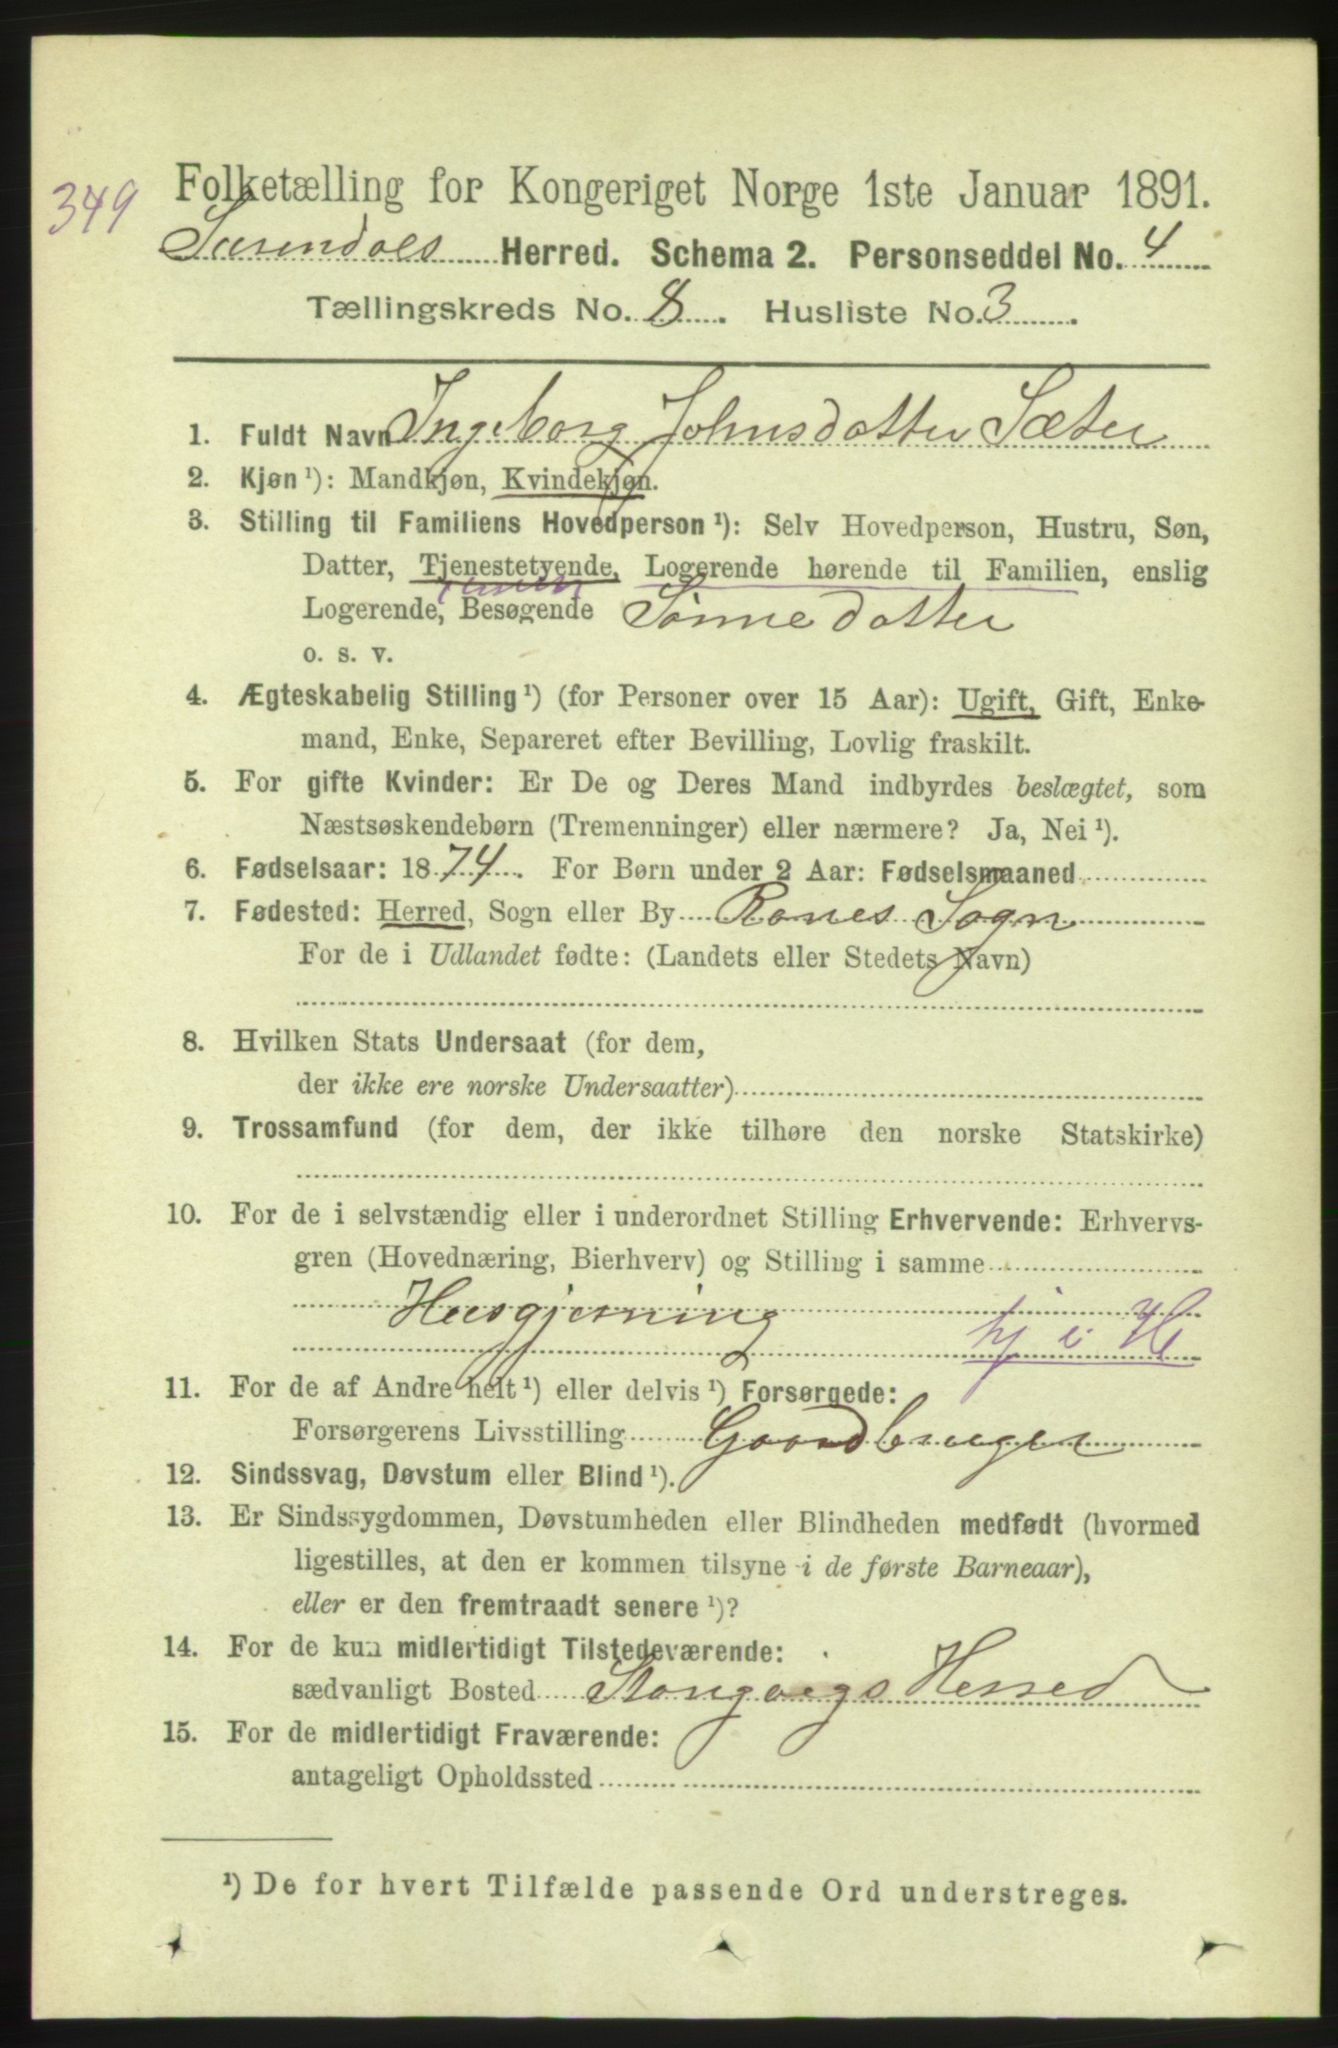 349
Folketælling for Kongeriget Norge 1ste Januar 1891.
Surendals Herred. Schema 2. Personseddel No. 4
Tællingskreds No. 8. Husliste No. 3.
1. Fuldt Navn Ingeborg Johnsdatter Sæter
2. Kjøn ¹): Mandkjøn, Kvindekjøn.
3. Stilling til Familiens Hovedperson ¹): Selv Hovedperson, Hustru, Søn,
Datter, Tjenestetyende, Logerende hørende til Familien, enslig
Logerende, Besøgende Sønnedatter
o. s. v.
4. Ægteskabelig Stilling ¹) (for Personer over 15 Aar): Ugift, Gift, Enke-
mand, Enke, Separeret efter Bevilling, Lovlig fraskilt.
5. For gifte Kvinder: Er De og Deres Mand indbyrdes beslægtet, som
Næstsøskendebørn (Tremenninger) eller nærmere? Ja, Nei ¹).
6. Fødselsaar: 1874. For Børn under 2 Aar: Fødselsmaaned
7. Fødested: Herred, Sogn eller By Ranes Sogn
For de i Udlandet fødte: (Landets eller Stedets Navn)
8. Hvilken Stats Undersaat (for dem,
der ikke ere norske Undersaatter)
9. Trossamfund (for dem, der ikke tilhøre den norske Statskirke)
10. For de i selvstændig eller i underordnet Stilling Erhvervende: Erhvervs-
gren (Hovednæring, Bierhverv) og Stilling i samme
Husgjerning hj i H
11. For de af Andre helt ¹) eller delvis ¹) Forsørgede:
Forsørgerens Livsstilling Gaardbruger
12. Sindssvag, Døvstum eller Blind ¹).
13. Er Sindssygdommen, Døvstumheden eller Blindheden medfødt (hvormed
ligestilles, at den er kommen tilsyne i de første Barneaar),
eller er den fremtraadt senere ¹)?
14. For de kun midlertidigt Tilstedeværende:
sædvanligt Bosted Stangvigs Herred
15. For de midlertidigt Fraværende:
antageligt Opholdssted
¹) De for hvert Tilfælde passende Ord understreges.